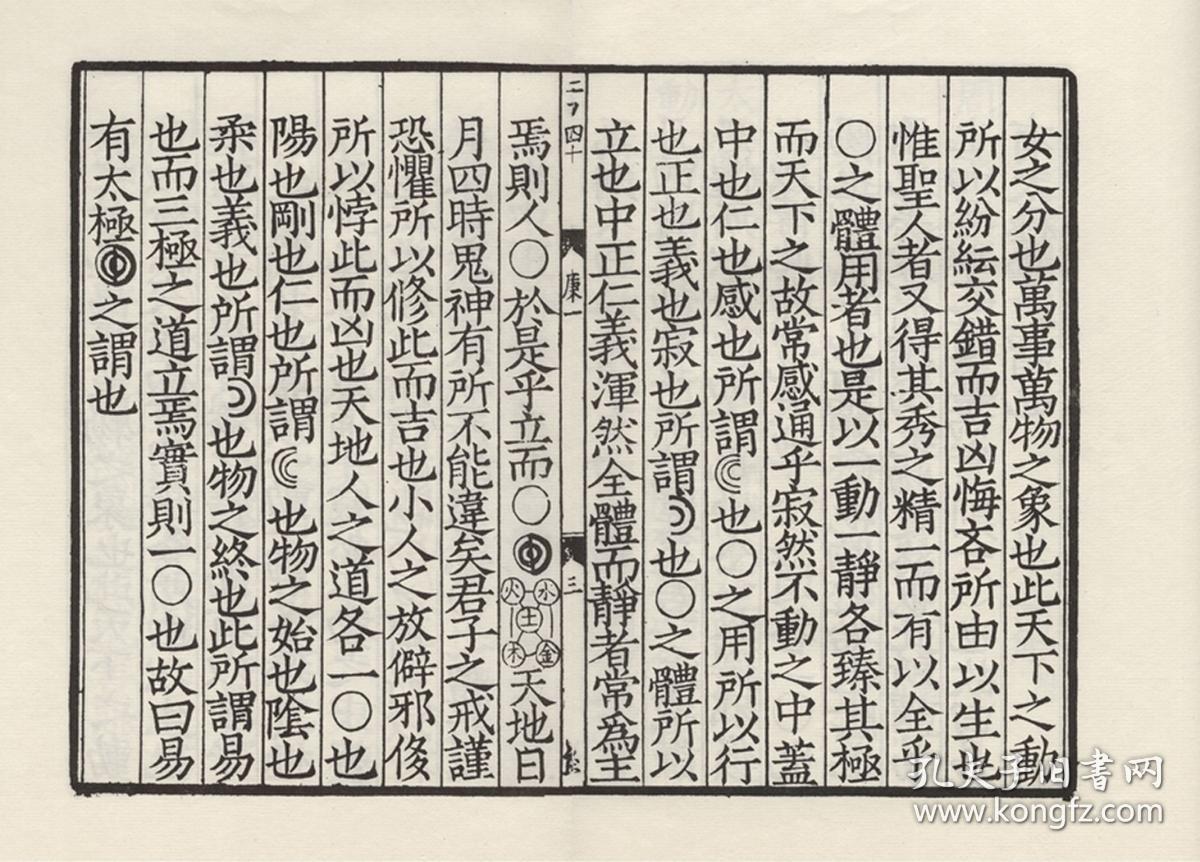 女之分也萬事萬物之象也此天下之動
所以紛紜交錯而吉凶悔吝所由以生也
惟聖人者又得其秀之精一而有以全乎
○之體用者也是以一動一靜各臻其極
而天下之故常感通乎寂然不動之中蓋
中也仁也感也所謂☾也○之用所以行
也正也義也寂也所謂☽也○之體所以
立也中正仁義渾然全體而靜者常爲主
二丁四十
康一
三
焉則人○於是乎立而○◎水火土金木天地日
月四時鬼神有所不能違矣君子之戒謹
恐懼所以修此而吉也小人之放僻邪侈
所以悖此而凶也天地人之道各一○也
陽也剛也仁也所謂☾也物之始也陰也
柔也義也所謂☽也物之終也此所謂易
也而三極之道立焉實則一○也故曰易
有太極◎之謂也
孔夫子旧书网
www.kongfz.com